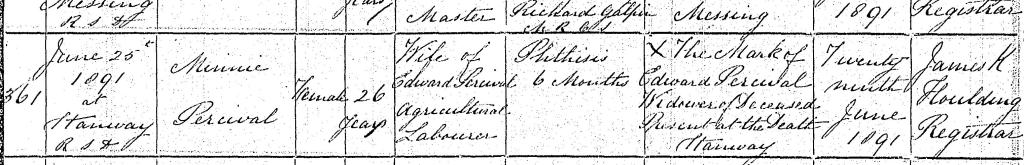 Messing
R S D
years
Master
Richard Galpin
M R C S
Messing
1891
Registrar
361
June 25th
1891
at
Stanway
R S D
Minnie
Percival
Female
26
years
Wife of
Edward Percival
Agricultural
Labourer
Phthisis
6 Months
X The Mark of
Edward Percival
Widower of Deceased
Present at the Death
Stanway
Twenty
ninth
June
1891
James K
Houlding
Registrar